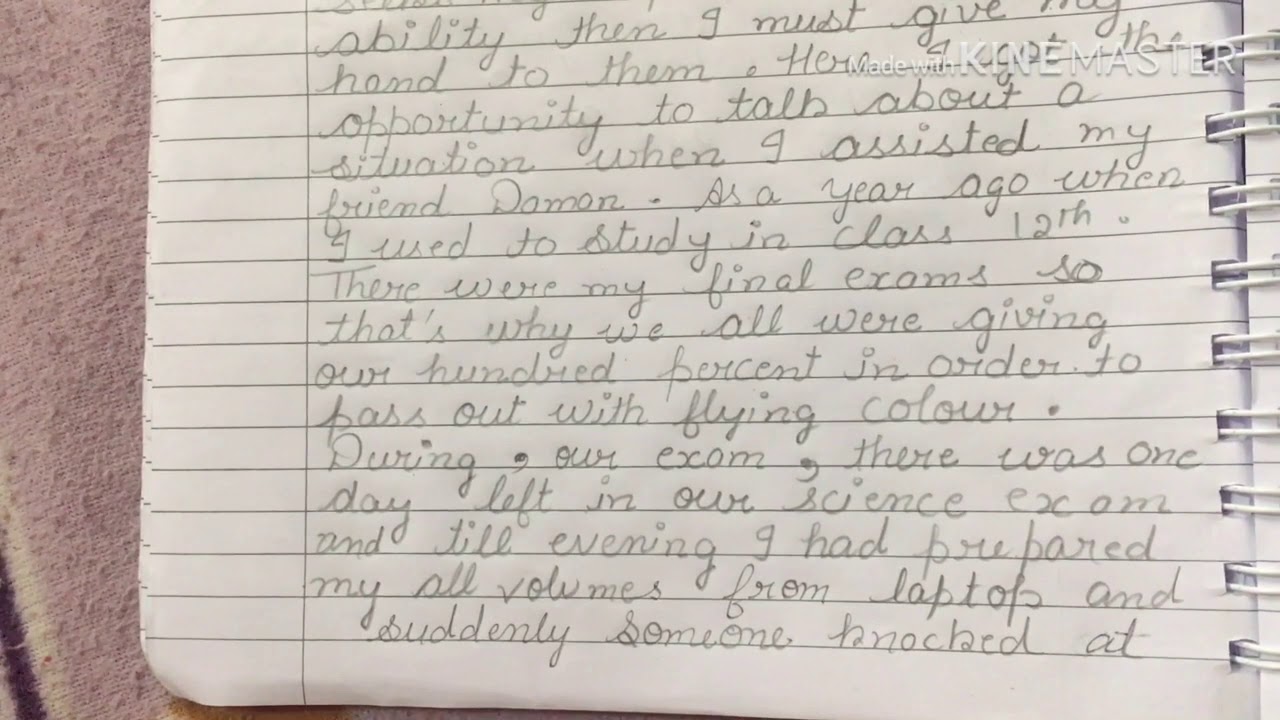 ability then I must give my
hand to them. Here I got the
Made with KINEMASTER
opportunity to talk about a
situation when I assisted my
friend Damon. As a year ago when
I used to study in class 12th.
There were my final exams so
that's why we all were giving
our hundred percent in order to
pass out with flying colour.
During, our exam, there was one
day left in our science exam
and till evening I had prepared
my all volumes from laptop and
suddenly someone knocked at